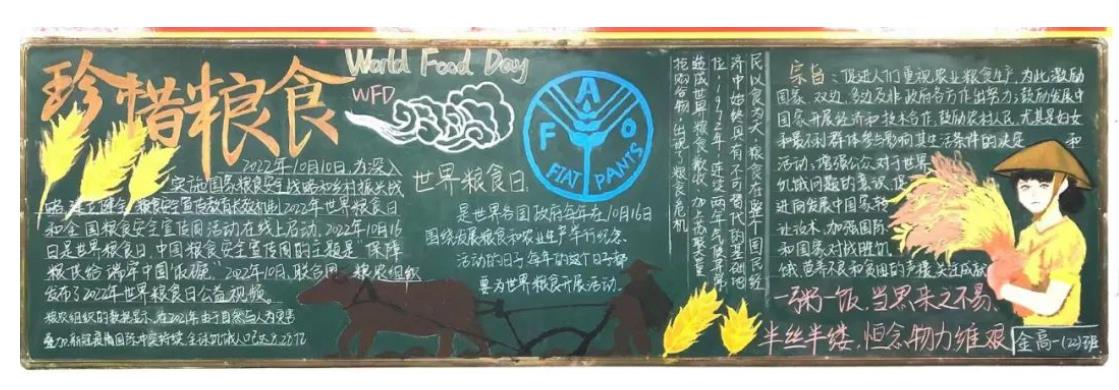 珍惜粮食
World Food Day
WFD
2022年10月10日,为深入
实施国家粮食安全战略和乡村振兴战
略,建立健全粮食安全宣传教育长效机制2022年世界粮食日
和全国粮食安全宣传周活动在线上启动.2022年10月16
日是世界粮食日.中国粮食安全宣传周的主题是“保障
粮食供给 端牢中国饭碗”2022年10月,联合国粮农组织
发布了2022年世界粮食日公益视频。
粮农组织的数据显示,在2021年由于自然与人为灾害
叠加新冠疫情国际冲突持续,全球饥饿人口已达8.28亿
世界粮食日,
是世界各国政府每年在10月16日
围绕发展粮食和农业生产举行纪念
活动的日子,每年的这个日子都
要为世界粮食开展活动.
FAO
FIAT PANTS
民以食为天,粮食在整个国民经
济中始终具有不可替代的基础地
位,1972年,连续两年气候异常
造成世界粮食歉收,加上苏联大量
抢购谷物,出现了粮食危机
宗旨:促进人们重视农业粮食生产,为此激励
国家、双边,多边及非政府各方作出努力;鼓励发展中
国家开展经济和技术合作,鼓励农村人民,尤其是妇女
和最不利群体参与影响其生活条件的决定 和
活动,增强公众对于世界
饥饿问题的意识,促
进向发展中国家转
让技术,加强国际
和国家对战胜饥
饿,营养不良和贫困的声援,关注成就
一粥一饭,当思来之不易,
半丝半缕,恒念物力维艰
金高一(22)班